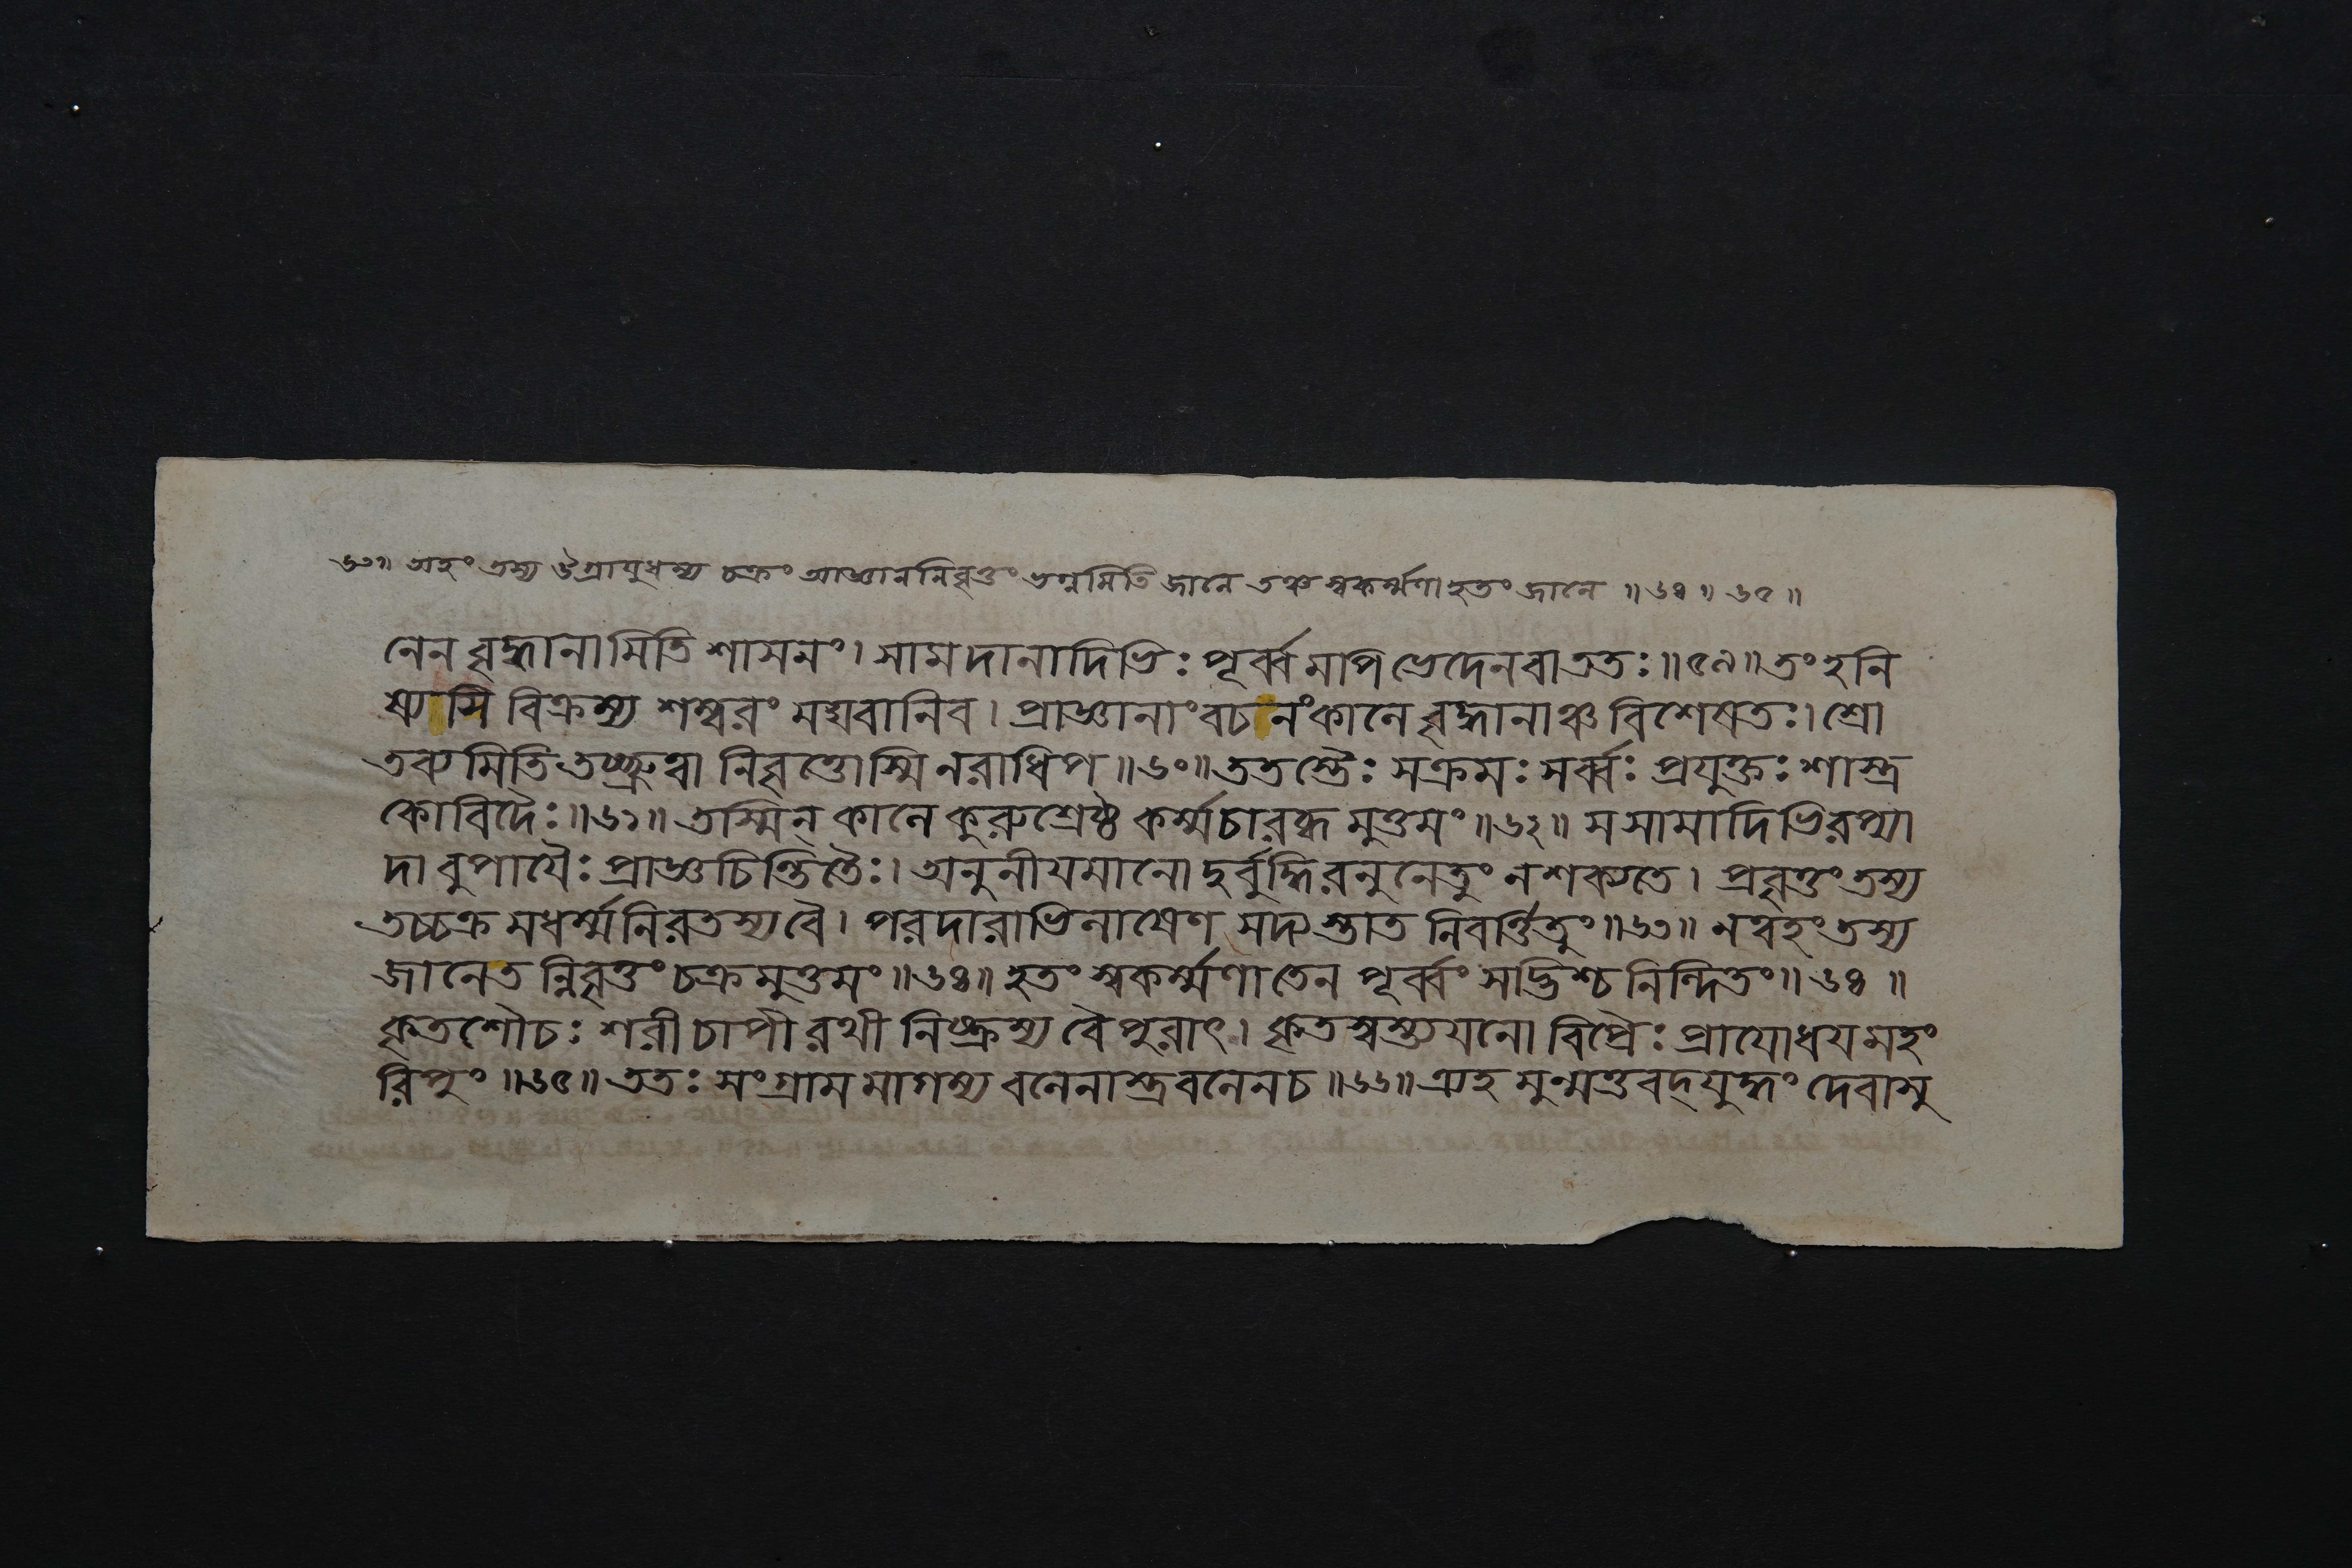 ৬৩॥ অহং তস্য ঔগ্রাযুধস্য চক্রং আজ্ঞাননিবৃত্তং ভগ্নমিতি জানে তঞ্চ স্বকর্ম্মণা হতং জানে ॥ ৬৪ ॥ ৬৫ ॥
নেন বৃদ্ধানামিতি শাসনং। সামদানাদিভিঃ পূর্ব্বমপি ভেদেন বা ততঃ॥৫৯॥ তং হনি
ষ্যসি বিক্রম্য শম্বরং মঘবানিব। প্রাজ্ঞানাং বচনং কালে বৃদ্ধানাঞ্চ বিশেষতঃ। শ্রো
তব্যমিতি তচ্ছ্রুত্বা নিবৃত্তোস্মি নরাধিপ॥৬০॥ ততস্তৈঃ সক্রমঃ সর্ব্বঃ প্রযুক্তঃ শাস্ত্র
কোবিদৈঃ॥৬১॥ তস্মিন্ কালে কুরুশ্রেষ্ঠ কর্ম্মচারব্ধমুত্তমং॥৬২॥ স সামাদিভিরপ্যা
দাবুপাযৈঃ প্রাজ্ঞচিন্তিতৈঃ। অনুনীযমানো দুর্বুদ্ধিরনুনেতুং ন শক্যতে। প্রবৃত্তং তস্য
তচ্চক্রমধর্ম্মনিরতস্য বৈ। পরদারাভিলাষেণ সদ্যস্তাত নিবর্ত্তিতুং॥৬৩॥ নত্বহং তস্য
জানে তন্নিবৃত্তং চক্রমুত্তমং॥৬৪॥ হতং স্বকর্ম্মণা তেন পূর্ব্বং সদ্ভিশ্চ নিন্দিতং॥ ৬৪ ॥
কৃতশৌচঃ শরী চাপী রথী নিষ্ক্রম্য বৈ পুরাৎ। কৃতস্বস্ত্যযনো বিপ্রৈঃ প্রাযোধযমহং
রিপুং॥৬৫॥ ততঃ সংগ্রামমাগম্য বলেনাস্ত্রবলেন চ॥৬৬॥ ত্র্যহমুন্মত্তবদ্যুদ্ধং দেবাসু